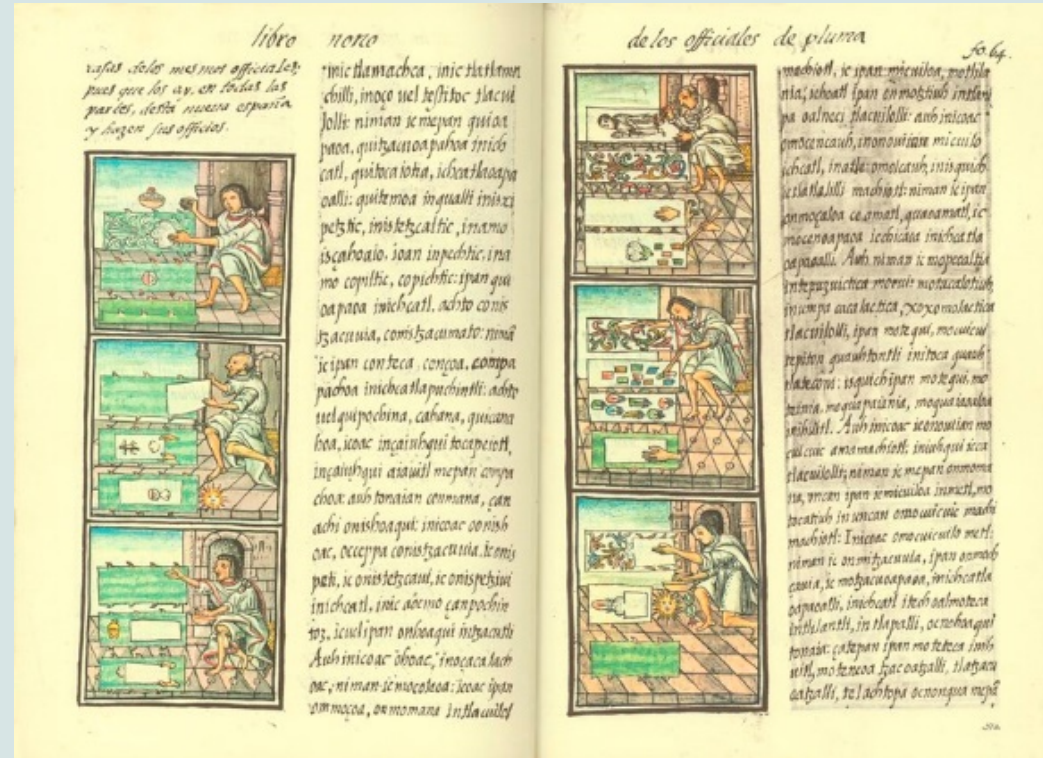 libro nono
casas de los mesmos officiales:
pues que los ay, en todas las
partes, desta nueva españa
y hazen sus officios.
inic tlamachca, inic tlatlama
chilli, inoço uel
lolli: niman ic mepan quioa
paoa, quitzacuoapahoa inich
catl, quitocaiotia, ichcatlaoapa
oalli: quitemoa inqualli inixxi
petztic, inistetzcaltic, inamo
isçahoaio, ioan inpechtic, ina
mo copiltic, copichtic: ipan qui
oapaoa inichcatl, achto conis
tzacuuia, conistzacumato: nimã
ic ipan conteca, conçoa, compa
pachoa inichcatlapuchintli: achto
uel quipochina, cahana, quicana
hoa, icoac inçaiuhqui tocapeiotl,
inçaiuhqui aiauitl mepan compa
choa: auh tonaian conmana, çan
achi onishoaqui: inicoac oonish
oac, occeppa conistzacuuia, ic onis
peti, ic onistetzcaui, ic onispetziui
inichcatl, inic aocmo çanpochin
toz, icuel ipan onhoaqui intzacutli
Auh inicoac ohoac, inocacalach
oac, niman ic mocoleoa: icoac ipan
ommoçoa, ommomana intlacuilol
de los officiales de pluma
fo. 64.
machiotl, ic ipan micuiloa, mothila
nia, iehoatl ipan onmotztiuh intlani
pa oalneci tlacuilolli: auh inicoac
omocencauh, inonouiian micuilo
ichcatl, inatle omolcauh, inisquich
ic tlatlalilli machiotl: niman ic ipan
onmoçaloa ce amatl, quauamatl, ic
mocenoapaoa icchicaoa inichcatla
oapaoalli. Auh niman ic mopecaltia
intepuzuictica
inompa cacalactica, xoxomolactica
tlacuilolli, ipan motequi, mecuicui
tepiton quauhtontli initoca quauh
tlateconi: isquich ipan motequi, mo
Auh inicoac ieonouian mo
cuicuic amamachiotl: iniuhqui icca
tlacuilolli; niman ic mepan onmoma
na, oncan ipan icmicuiloa inmetl, mo
tocatiuh in uncan omocuicuic machi
machiotl: Inicoac omocuicuilo metl:
niman ic onmitzacuuia, ipan onmoch
cauia, ic motzacuoapaoa, inichcatla
oapaoalli, inichcatl itech oalmoteca
intlilantli, in tlapalli, ocnohoaqui
tonaia: çatepan ipan moteteca inih
uitl, moteneoa tzacoatzalli, tlatzacu
oatzalli, tel achtopa ocnonqua mepã